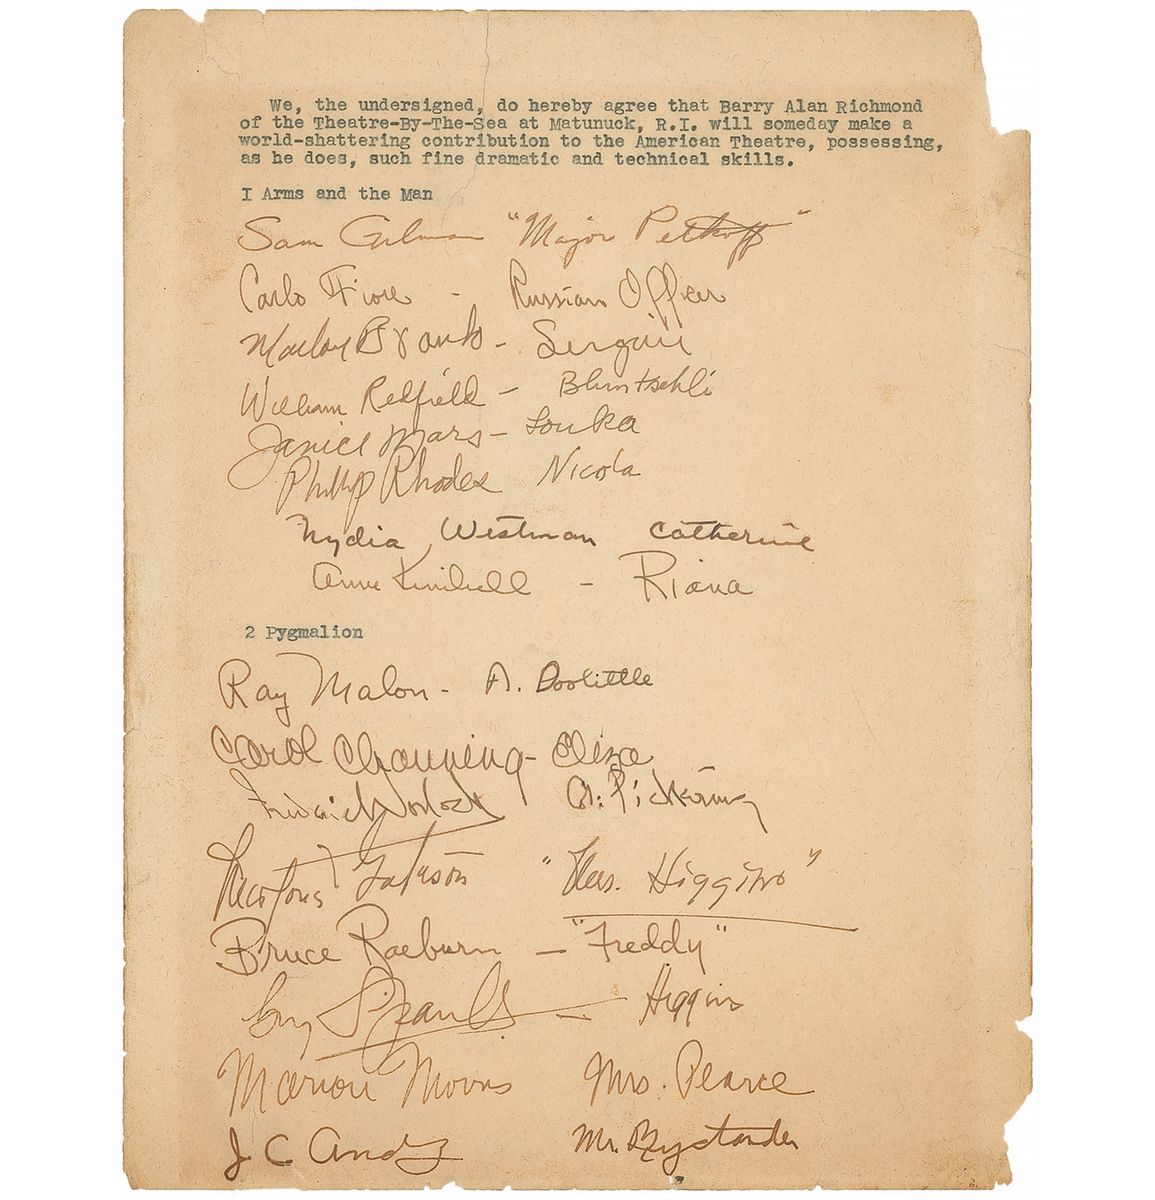 We, the undersigned, do hereby agree that Barry Alan Richmond
of the Theatre-By-The-Sea at Matunuck, R.I. will someday make a
world-shattering contribution to the American Theatre, possessing,
as he does, such fine dramatic and technical skills.
I Arms and the Man
Sam Gilman "Major Petkoff"
Carlo Fiore - Russian Officer
Marlon Brando - Serguis
William Redfield - Bluntschli
Janice Mars - Louka
Phillip Rhodes Nicola
Nydia Westman Catherine
Anne Kimbell - Riana
2 Pygmalion
Ray Malon - A. Doolittle
Carol Channing - Eliza
Frederic Worlock Pickering
"Mrs. Higgins"
Bruce Raeburn - "Freddy"
Guy Spaull - Higgins
Marion Morris Mrs. Pearce
J C Andy Mr. Bystander